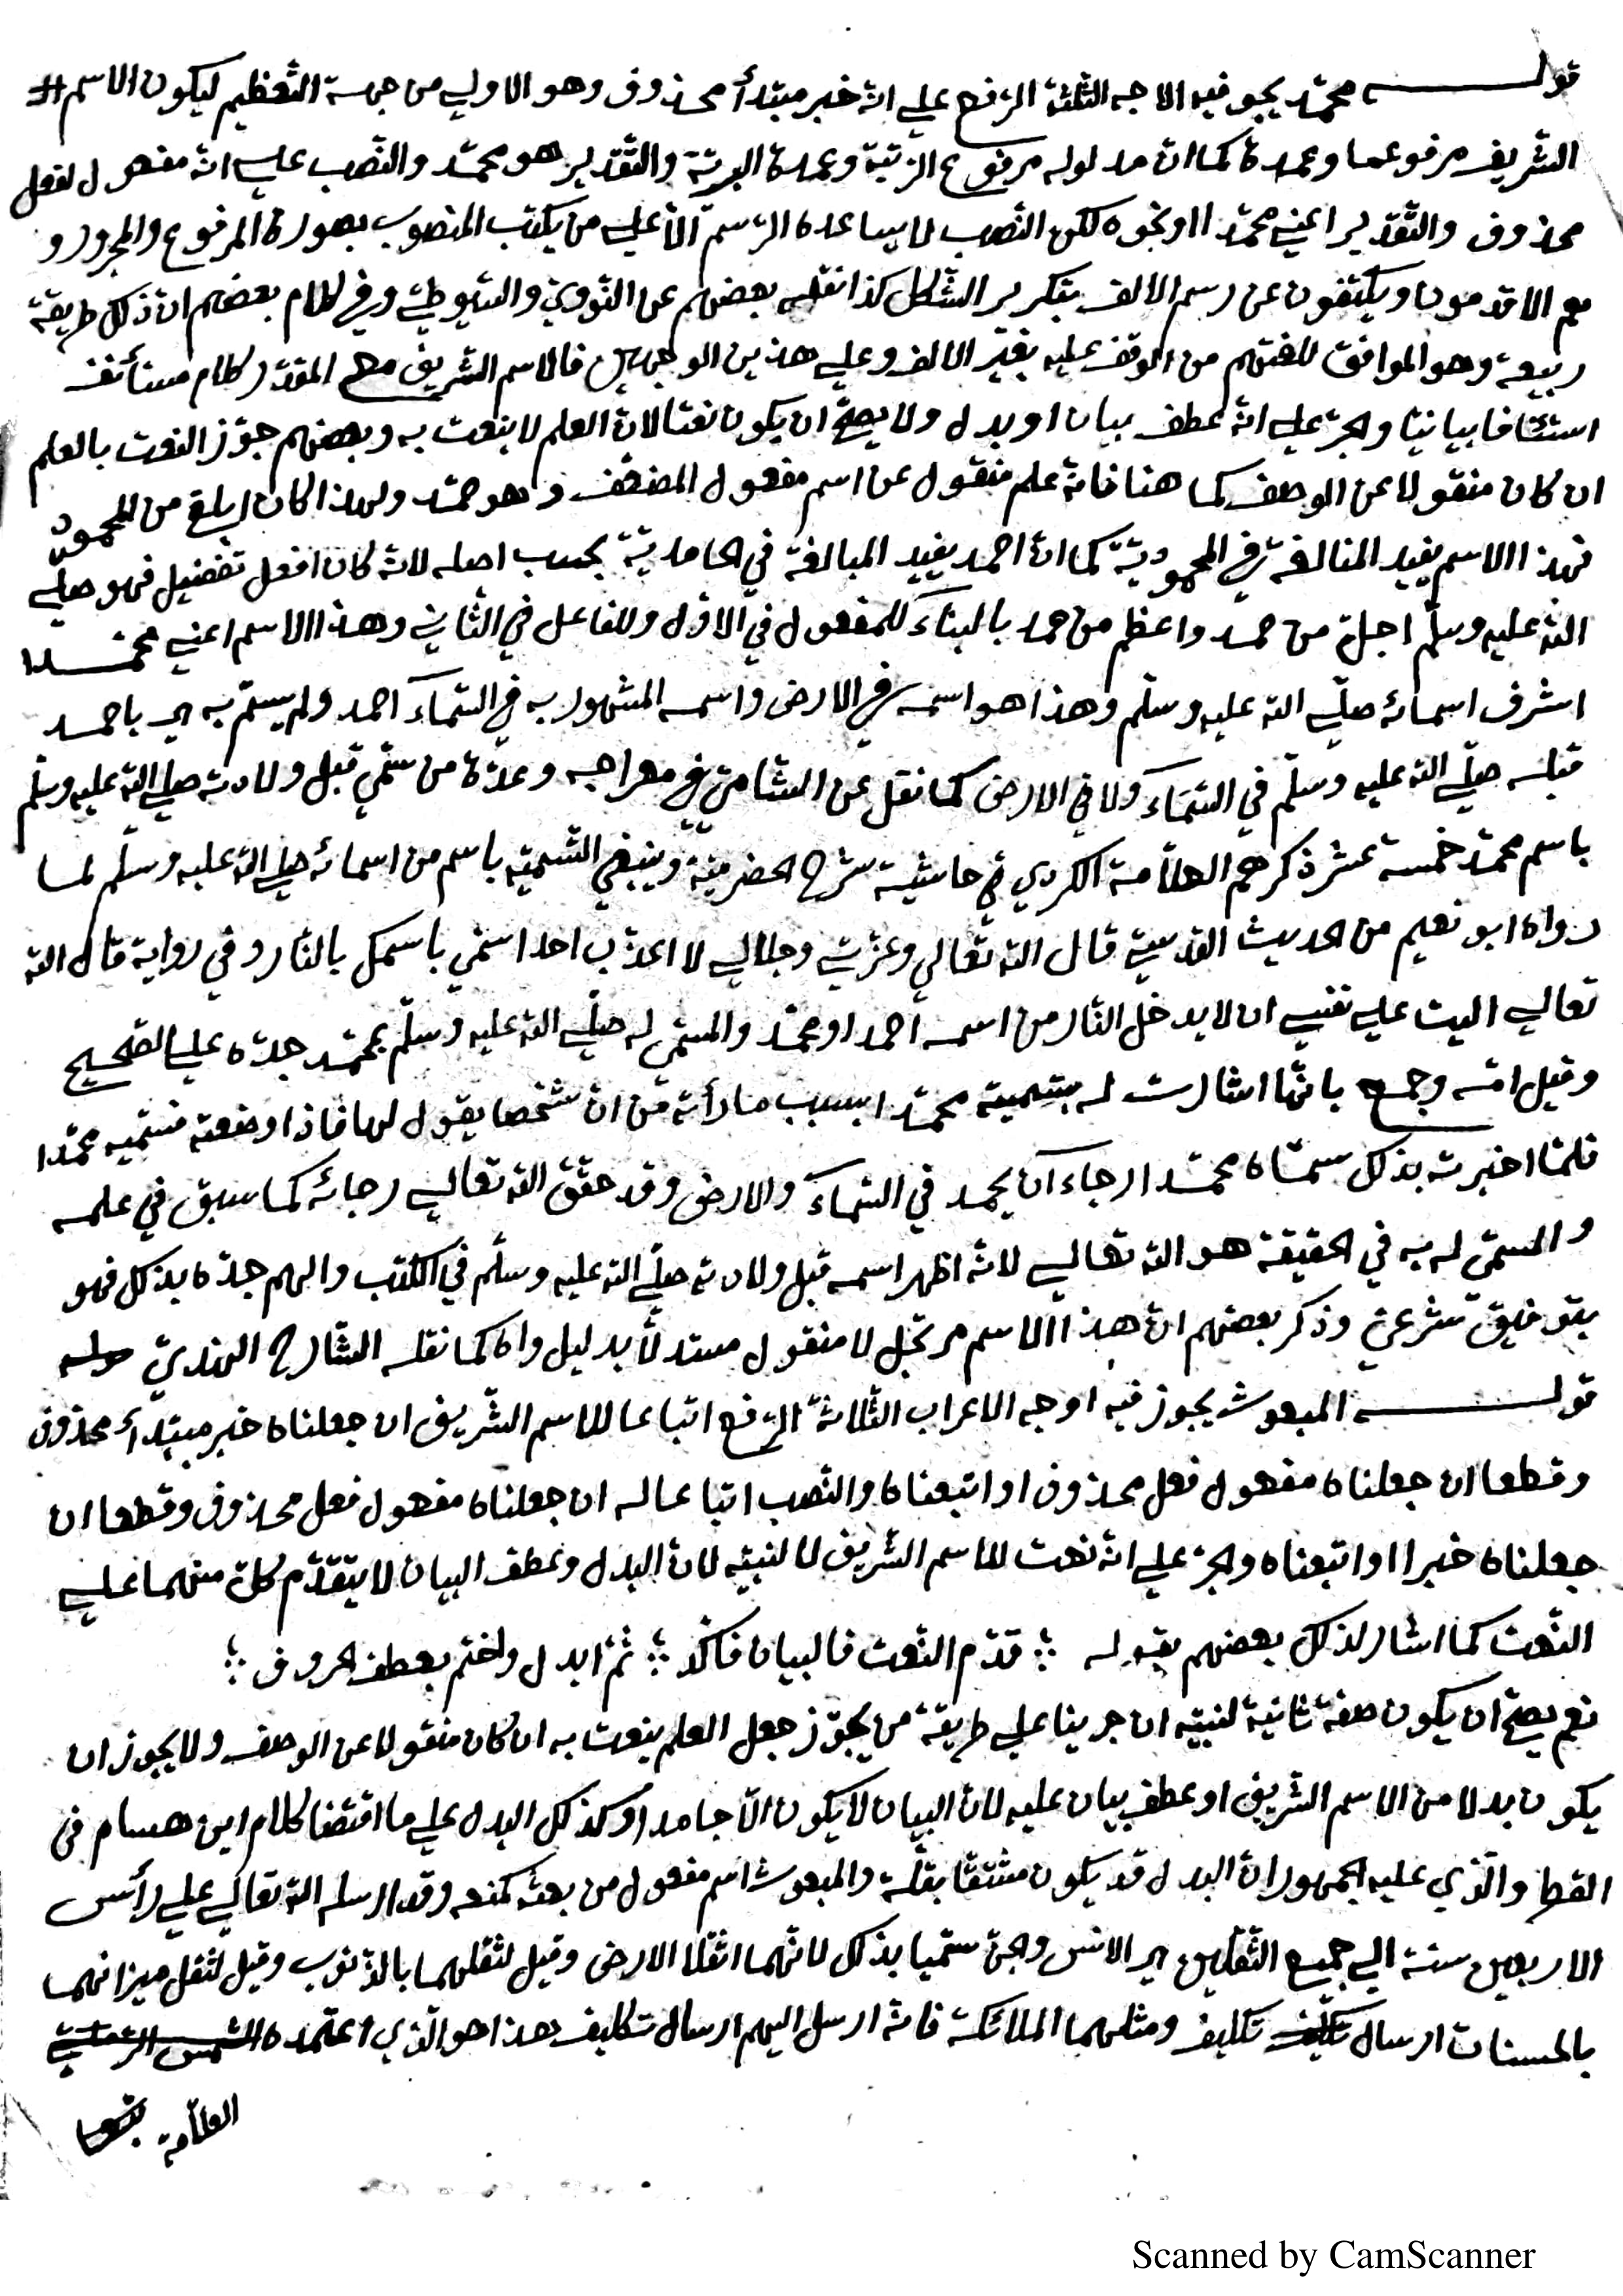 قولـــــه محمّد يجوز فيه الاوجه الثلثة الرّفع علي انّه خبر مبتدأ محذوف وهو الاولي من جهة التّعظيم ليكون الاسم #
الشّريف مرفوعا وعمدة كما انّ مدلوله مرفوع الرّتبة وعمدة البريّة والتّقدير هو محمّد والنّصب علي انّه مفعول لفعل
محذوف والتّقدير اعني محمّدا او نحوه لكن النّصب لا يساعده الرّسم الّا علي من يكتب المنصوب بصورة المرفوع والمجرور و
هم الاقدمون ويكتفون عن رسم الالف بتكرير الشّكل كذا نقله بعضهم عن النّووي والسّيوطي وفي كلام بعضهم انّ ذلك طريقة
ربيعة وهو الموافق للغتهم من الوقف عليه بغير الالف وعلي هذين الوجهين فالاسم الشّريف مع المقدّر كلام مستأنف
استئنافا بيانيّا والجرّ علي انّه عطف بيان او بدل ولا يصحّ ان يكون نعتا لانّ العلم لا ينعت به وبعضهم جوّز النعت بالعلم
ان كان منقولا عن الوصف كما هنا فانّه علم منقول عن اسم مفعول المضعّف وهو حمّد ولهذا كان ابلغ من المحمود
فهذا الاسم يفيد المبالغة في المحموديّة كما انّ احمد يفيد المبالغة في الحامديّة بحسب اصله لانّه كان افعل تفضيل فهو صلّي
اللّه عليه وسلّم اجلّ من حمد واعظم من حمد بالبناء للمفعول في الاوّل وللفاعل في الثّاني وهذا الاسم اعني محمّدا
اشرف اسمائه صلّي اللّه عليه وسلّم وهذا هو اسمه في الارض واسمه المشهور به في السّماء احمد ولم يسمّ به اي باحمد
قبله صلّي اللّه عليه وسلّم في السّماء ولا في الارض كما نقل عن الشّامي في معراجه وعدّة من سمّي قبل ولادته صلّي اللّه عليه وسلّم
باسم محمّد خمسة عشر ذكرهم العلّامة الكردي في حاشية شرح الحضرميّة وينبغي التّسميه باسم من اسمائه صلّي اللّه عليه وسلّم لما
رواه ابو نعيم من الحديث القدسيّ قال اللّه تعالي وعزّتي وجلالي لا اعذّب احدا سمّي باسمك بالنّار وفي رواية قال اللّه
تعالي اليت علي نفسي ان لا يدخل النّار من اسمه احمد او محمّد والمسمّي له صلّي اللّه عليه وسلّم بمحمّد جدّه علي الصّحيح
وقيل امّه وجمع بانّها اشارت له بتسميته محمّدا بسبب ما رأته من انّ شخصا يقول لها فاذا وضعته فسمّيه محمّدا
فلمّا اخبرته بذلك سمّاه محمّدا رجاء ان يحمد في السّماء والارض وقد حقّق اللّه تعالي رجائه كما سبق في علمه
والمسمّي له به في الحقيقة هو اللّه تعالي لانّه اظهر اسمه قبل ولادته صلّي اللّه عليه وسلّم في الكتب والهم جدّه بذلك فهو
بتوفيق شرعيّ وذكر بعضهم انّ هذا الاسم مرتجل لا منقول مستدلّا بدليل واه كما نقله الشّارح الهنديّ
قولـــــه المبعوث يجوز فيه اوجه الاعراب الثّلاثة الرّفع اتباعا للاسم الشّريف ان جعلناه خبر مبتدأ محذوف
وقطعا ان جعلناه مفعول فعل محذوف او اتبعناه والنّصب اتباعا له ان جعلناه مفعول فعل محذوف وقطعا ان
جعلناه خبرا او اتبعناه والجرّ علي انّه نعت للاسم الشّريف لا لنبيّه لانّ البدل وعطف البيان لا يتقدّم كلّ منهما علي
النّعت كما اشار لذلك بعضهم بقوله ؛ قدّم النّعت فالبيان فاكّد ؛ ثمّ ابدل واختم بعطف الحروف ؛
نعم يصحّ ان يكون صفة ثانية لنبيّه ان جرينا علي طريقة من يجوّز جعل العلم ينعت به ان كان منقولا عن الوصف ولا يجوز ان
يكون بدلا من الاسم الشّريف او عطف بيان عليه لانّ البيان لا يكون الّا جامدا وكذلك البدل علي ما اقتضا كلام ابن هسام في
القطر والّذي عليه الجمهور انّ البدل قد يكون مشتقّا بقلّة والمبعوث اسم مفعول من بعثه كمنعه وقد ارسله اللّه تعالي علي رأس
الاربعين سنة الي جميع الثّقلين اي الانس والجنّ سمّيا بذلك لانّهما اثقلا الارض وقيل لثقلهما بالذّنوب وقيل لثقل ميزانهما
بالحسنات ارسال تكليف ومثلهما الملائكة فانّه ارسل اليهم ارسال تكليف هذا هو الّذي اعتمده الشمس الرّمليّ
العلّامة
Scanned by CamScanner